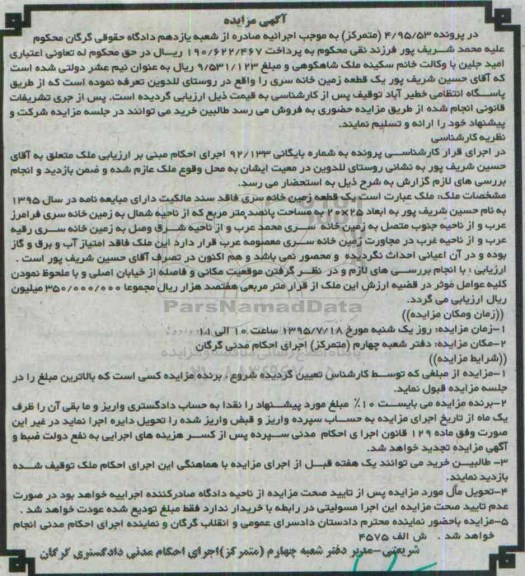 آگهی مزایده
در پرونده ۴/۹۵/۵۳ (متمرکز) به موجب اجرائیه صادره از شعبه یازدهم دادگاه حقوقی گرگان محکوم
علیه محمد شریف پور فرزند نقی محکوم به پرداخت ۱۹۰/۶۲۲/۴۶۷ ریال در حق محکوم له تعاونی اعتباری
امید جلین با وکالت خانم سکینه ملک شاهکوهی و مبلغ ۹/۵۳۱/۱۲۳ ریال به عنوان نیم عشر دولتی شده است
که آقای حسین شریف پور یک قطعه زمین خانه سری را واقع در روستای للدوین تعرفه نموده است که از طریق
پاسگاه انتظامی خطیر آباد توقیف پس از کارشناسی به قیمت ذیل ارزیابی گردیده است. پس از جری تشریفات
قانونی انجام شده از طریق مزایده حضوری به فروش می رسد طالبین خرید می توانند در جلسه مزایده شرکت و
پیشنهاد خود را ارائه و تسلیم نمایند.
نظریه کارشناسی
در اجرای قرار کارشناسی پرونده به شماره بایگانی ۹۲/۱۳۳ اجرای احکام مبنی بر ارزیابی ملک متعلق به آقای
حسین شریف پور به نشانی روستای للدوین در معیت ایشان به محل وقوع ملک عازم شده و ضمن بازدید و انجام
بررسی های لازم گزارش به شرح ذیل به استحضار می رسد.
مشخصات ملک: ملک عبارت است یک قطعه زمین خانه سری فاقد سند مالکیت دارای مبایعه نامه در سال ۱۳۹۵
به نام حسین شریف پور به ابعاد ۲۵×۲۰ به مساحت پانصد متر مربع که از ناحیه شمال به زمین خانه سری فرامرز
عرب و از ناحیه جنوب متصل به زمین خانه سری محمد عرب و از ناحیه شرق وصل به زمین خانه سری رقیه
عرب و از ناحیه غرب در مجاورت زمین خانه سری معصومه عرب قرار دارد این ملک فاقد امتیاز آب و برق و گاز
بوده و در آن اعیانی احداث نگردیده و محصور نمی باشد و هم اکنون در تصرف آقای حسین شریف پور است .
ارزیابی : با انجام بررسی های لازم و در نظر گرفتن موقعیت مکانی و فاصله از خیابان اصلی و با ملحوظ نمودن
کلیه عوامل موثر در قضیه ارزش این ملک از قرار متر مربعی هفتصد هزار ریال مجموعا ۳۵۰/۰۰۰/۰۰۰ میلیون
ریال ارزیابی می گردد.
((زمان ومکان مزایده))
۱-زمان مزایده: روز یک شنبه مورخ ۱۳۹۵/۷/۱۸ ساعت ۱۰ الی ۱۱
۲-مکان مزایده: دفتر شعبه چهارم (متمرکز) اجرای احکام مدنی گرگان
((شرایط مزایده))
۱-مزایده از مبلغی که توسط کارشناس تعیین گردیده شروع ، برنده مزایده کسی است که بالاترین مبلغ را در
جلسه مزایده قبول نماید.
۲-برنده مزایده می بایست ۱۰٪ مبلغ مورد پیشنهاد را نقدا به حساب دادگستری واریز و ما بقی آن را ظرف
یک ماه از تاریخ اجرای مزایده به حساب سپرده واریز و قبض واریز شده را تحویل دایره اجرا نماید در غیر این
صورت وفق ماده ۱۲۹ قانون اجرا ی احکام مدنی سپرده پس از کسر هزینه های اجرایی به نفع دولت ضبط و
آگهی مزایده تجدید خواهد شد.
۳- طالبین خرید می توانند یک هفته قبل از اجرای مزایده با هماهنگی این اجرای احکام ملک توقیف شده
بازدید نمایند.
۴-تحویل مال مورد مزایده پس از تایید صحت مزایده از ناحیه دادگاه صادرکننده اجراییه خواهد بود در صورت
عدم تایید صحت مزایده این اجرا مسولیتی در رابطه با خریدار ندارد فقط مبلغ تودیع شده عودت خواهد شد .
۵-مزایده باحضور نماینده محترم دادستان دادسرای عمومی و انقلاب گرگان و نماینده اجرای احکام مدنی انجام
خواهد شد . ش الف ۴۵۷۵
شریعتی-مدیر دفتر شعبه چهارم (متمرکز)اجرای احکام مدنی دادگستری گرگان
ParsNamadData